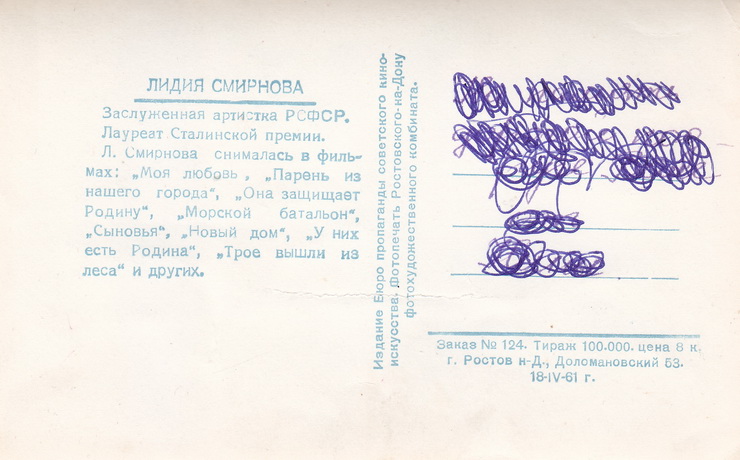 ЛИДИЯ СМИРНОВА
Заслуженная артистка РСФСР.
Лауреат Сталинской премии.
Л. Смирнова снималась в филь-
мах: „Моя любовь, „Парень из
нашего города“, „Она защищает
Родину“, „Морской батальон“,
„Сыновья“, „Новый дом“, „У них
есть Родина“, „Трое вышли из
леса“ и других.
Издание Бюро пропаганды советского кино-
искусства. Фотопечать Ростовского-на-Дону
фотохудожественного комбината.
Заказ № 124. Тираж 100.000. цена 8 к.
г. Ростов н-Д., Доломановский 53.
18-IV-61 г.